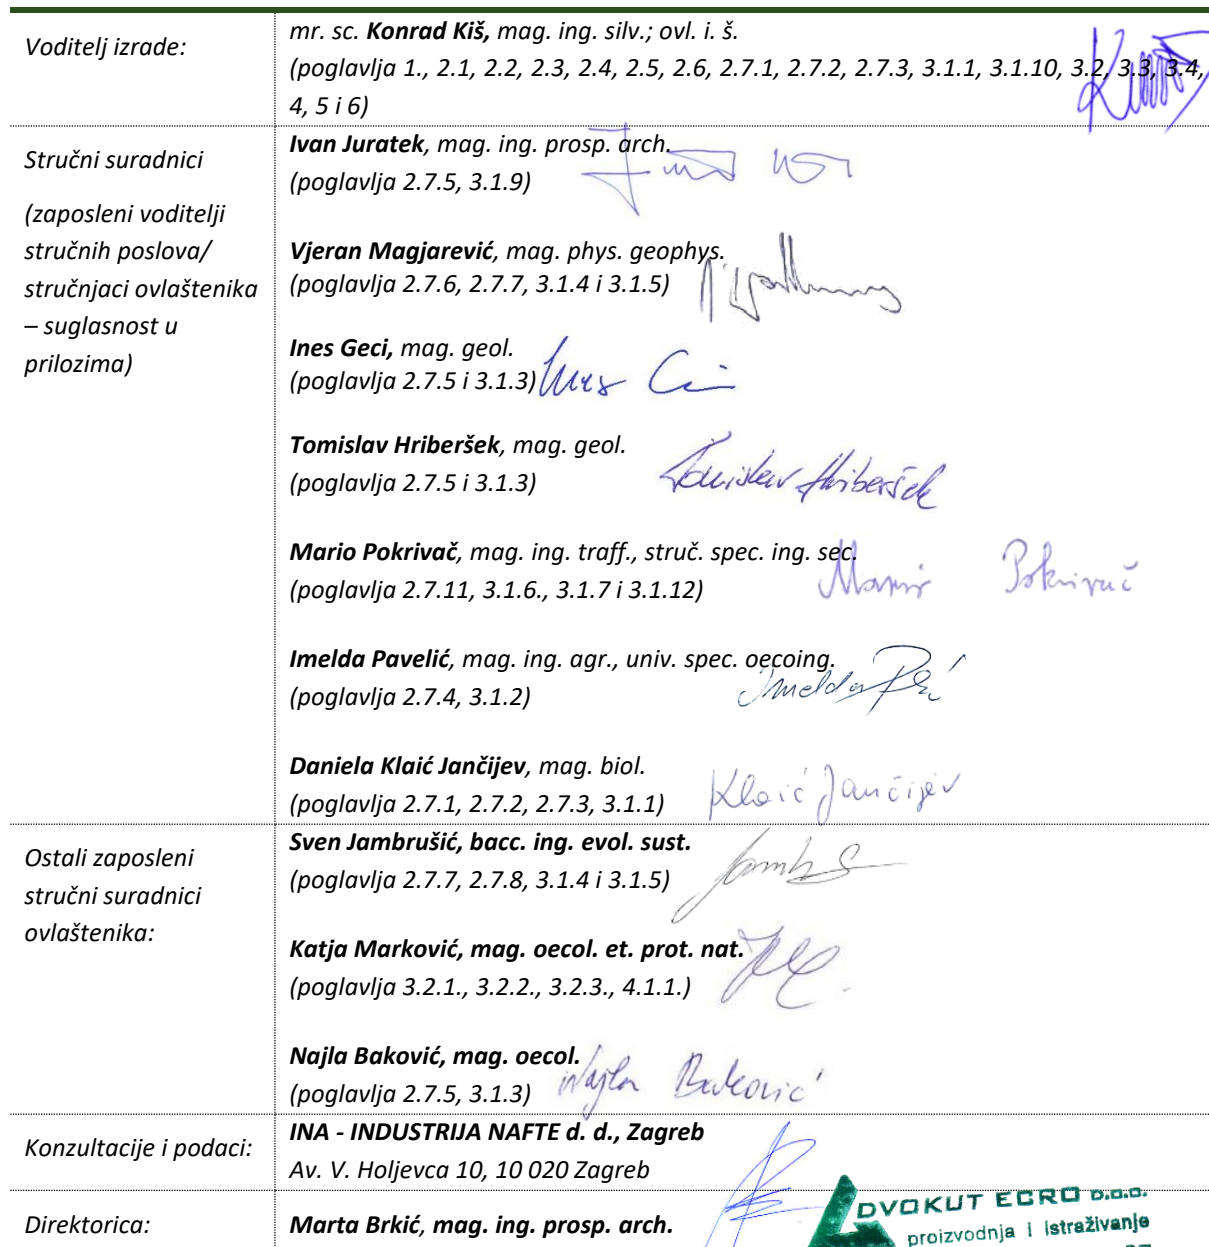 Voditelj izrade:
mr. sc. Konrad Kiš, mag. ing. silv.; ovl. i. š.
(poglavlja 1., 2.1, 2.2, 2.3, 2.4, 2.5, 2.6, 2.7.1, 2.7.2, 2.7.3, 3.1.1, 3.1.10, 3.2, 3.3, 3.4,
4, 5 i 6)
Stručni suradnici
(zaposleni voditelji
stručnih poslova/
stručnjaci ovlaštenika
– suglasnost u
prilozima)
Ivan Juratek, mag. ing. prosp. arch.
(poglavlja 2.7.5, 3.1.9)
Vjeran Magjarević, mag. phys. geophys.
(poglavlja 2.7.6, 2.7.7, 3.1.4 i 3.1.5)
Ines Geci, mag. geol.
(poglavlja 2.7.5 i 3.1.3)
Ines
Tomislav Hriberšek, mag. geol.
(poglavlja 2.7.5 i 3.1.3)
Tomislav Hriberšek
Mario Pokrivač, mag. ing. traff., struč. spec. ing. sec.
(poglavlja 2.7.11, 3.1.6., 3.1.7 i 3.1.12)
Mario Pokrivač
Imelda Pavelić, mag. ing. agr., univ. spec. oecoing.
(poglavlja 2.7.4, 3.1.2)
Imelda
Daniela Klaić Jančijev, mag. biol.
(poglavlja 2.7.1, 2.7.2, 2.7.3, 3.1.1)
Klaić Jančijev
Ostali zaposleni
stručni suradnici
ovlaštenika:
Sven Jambrušić, bacc. ing. evol. sust.
(poglavlja 2.7.7, 2.7.8, 3.1.4 i 3.1.5)
Katja Marković, mag. oecol. et. prot. nat.
(poglavlja 3.2.1., 3.2.2., 3.2.3., 4.1.1.)
Najla Baković, mag. oecol.
(poglavlja 2.7.5, 3.1.3)
Najla Baković
Konzultacije i podaci:
INA - INDUSTRIJA NAFTE d. d., Zagreb
Av. V. Holjevca 10, 10 020 Zagreb
Direktorica:
Marta Brkić, mag. ing. prosp. arch.
ADVOKUT ECRO D.O.O.
proizvodnja i istraživanje